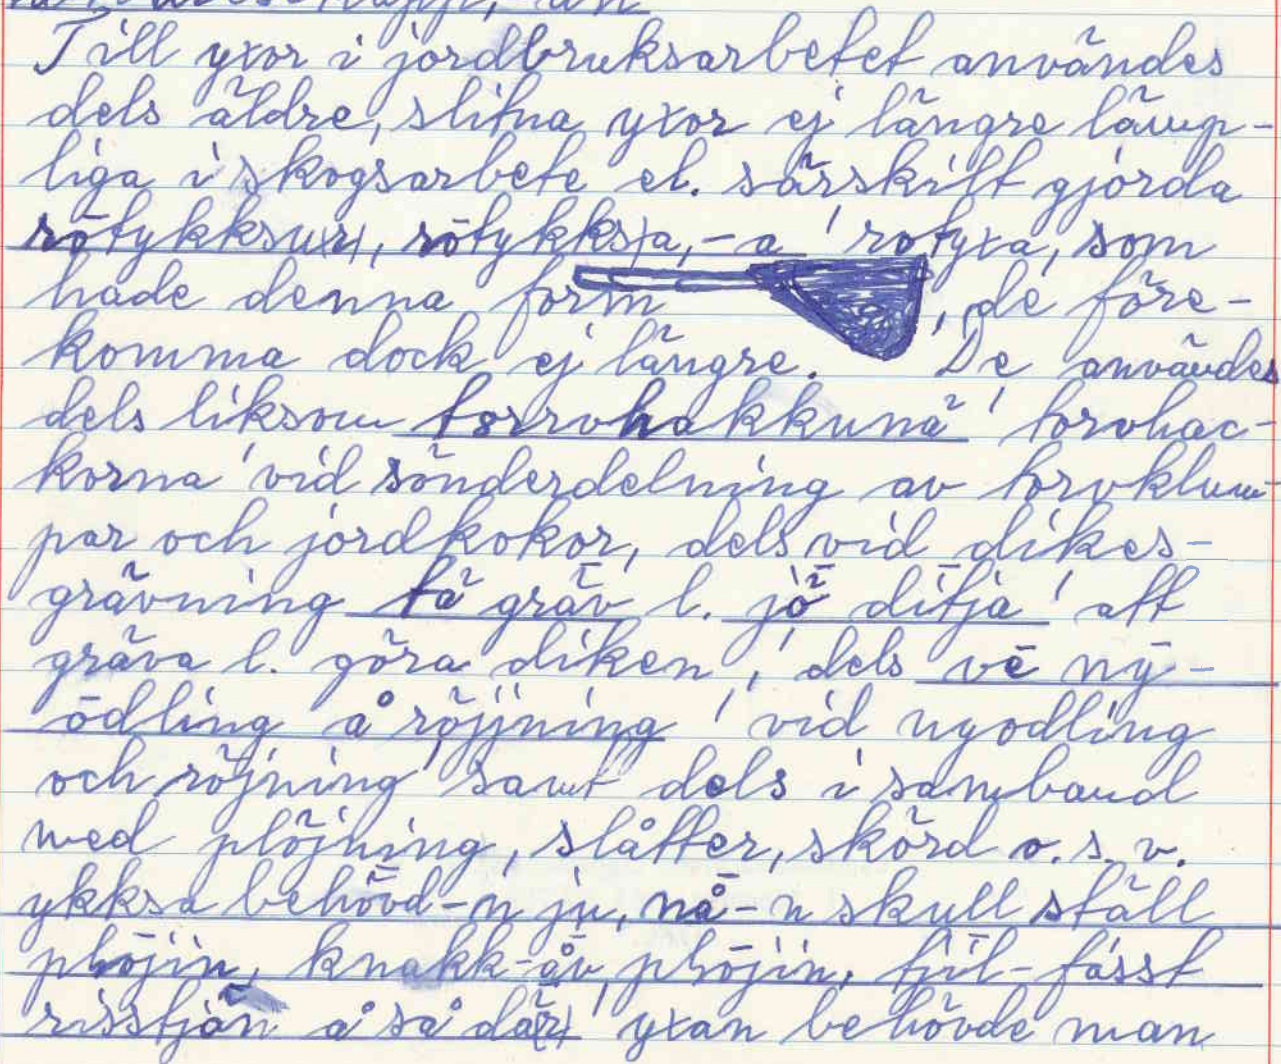 Till yxor i jordbruksarbetet användes
dels äldre, slitna yxor ej längre lämp-
liga i skogsarbete el. särskilt gjorda
rōtykksu(r), rōtykks(a, -a ' rotyxa, som
hade denna form , de före-
komma dock ej längre. ' De användes
dels liksom torrvhakkunä ' torvhac-
korna ' vid sönderdelning av torvklum-
par och jordkokor, dels vid dikes-
grävning tä grǟv l. jȫ dītja ' att
gräva l. göra diken ', dels vē nȳ-
ōdling å röjjning ' vid nyodling
och röjning ' samt dels i samband
med plöjning, slåtter, skörd o. s. v.
ykksa behȫvd-n ju, nå̄-n skull ställ
plöjin, knakk-åv plöjin, tjīl-fásst
risstjän å så dä(r) ' yxan behövde man